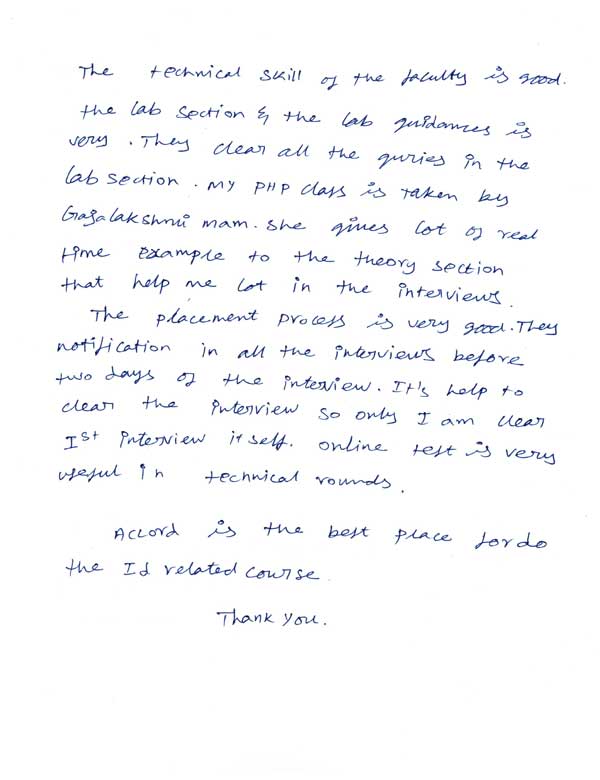 The technical skill of the faculty is good.
the lab section & the lab guidances is
very. They clear all the quries in the
lab section. My PHP class is taken by
Gajalakshmi mam. she gives lot of real
time example to the theory section
that help me lot in the interviews.
The placement process is very good. They
notification in all the interviews before
two days of the interview. It's help to
clear the interview so only I am clear
Ist interview itself. online test is very
useful in technical rounds.
Accord is the best place for do
the It related course.
Thank you.